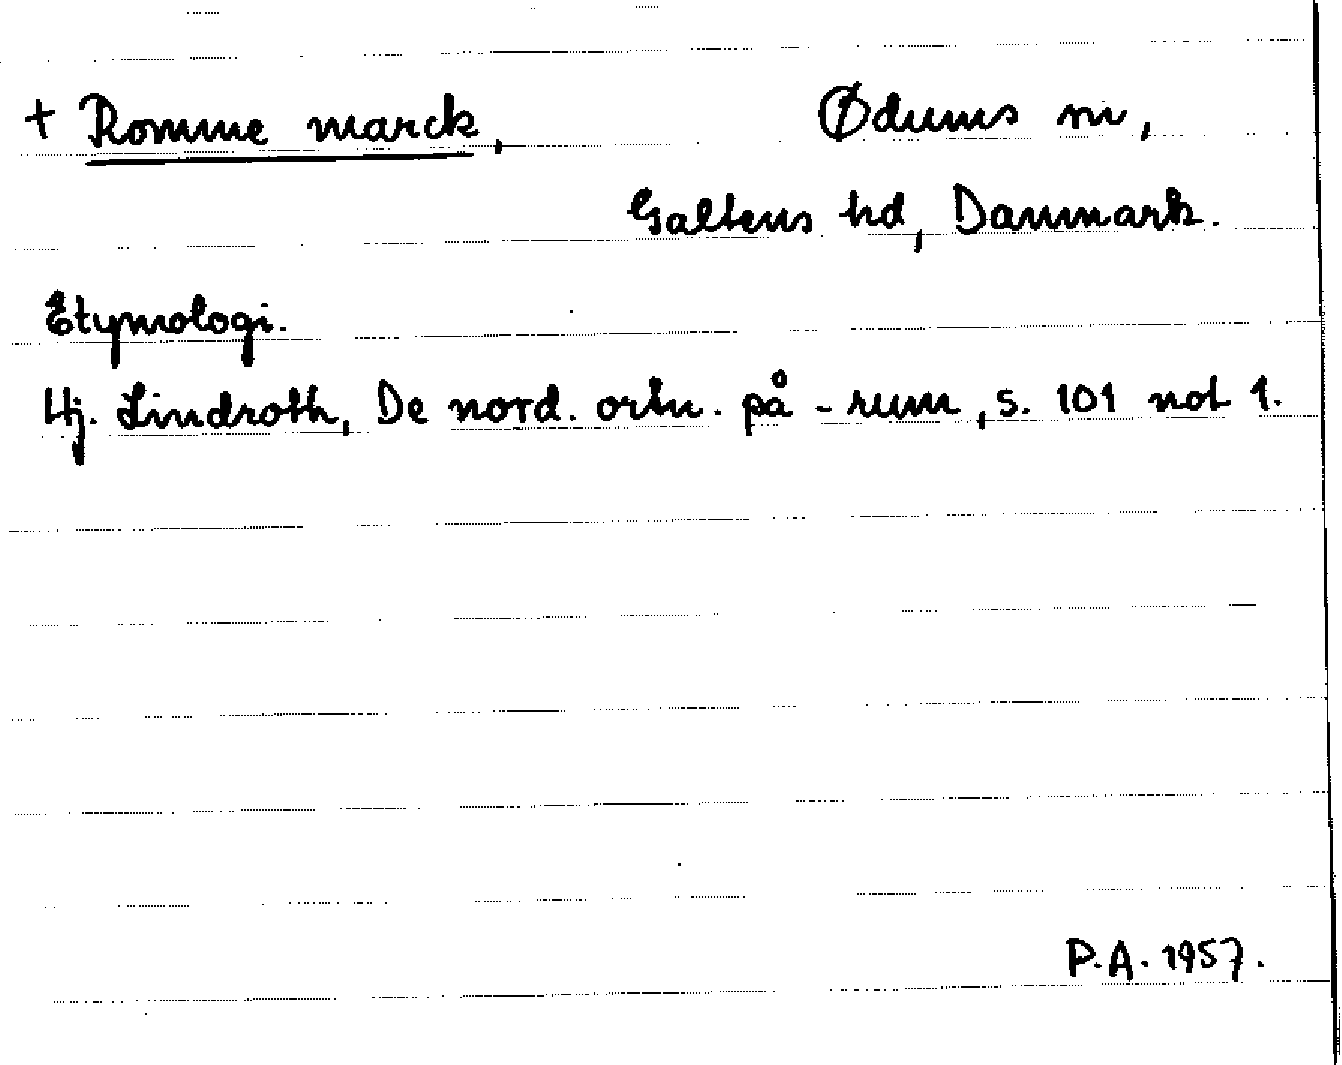 + Romme marck,
Ødums sn,
Galtens hd, Danmark.
Etymologi.
Hj. Lindroth, De nord. ortn. på -rum, s. 101 not 1.
P.A. 1957.